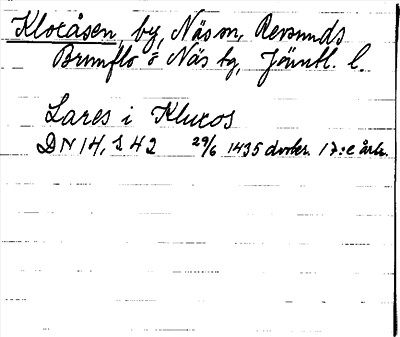 Kloxåsen, by, Näs sn, Revsunds
Brunflo o Näs tg, Jämtl. l.
Lares i Kluxos
DN 14, s 42 29/6 1435 avskr. 17:e årh.